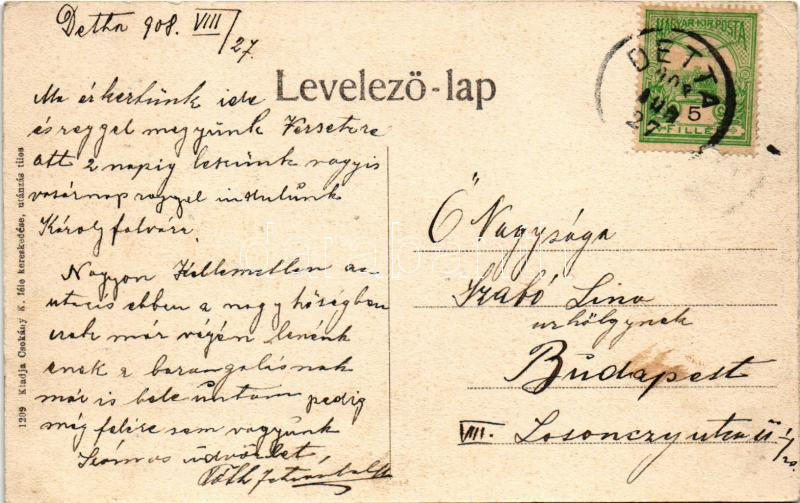 Detta 908. VIII/27.
Levelező-lap
MAGYAR KIR. POSTA
5
FILLÉR
DETTA
908
AUG
27
Ma érkeztünk ide
és reggel megyünk Versetzre
ott 2 napig leszünk vagyis
vasárnap reggel indulunk
Károlyfalvára.
Nagyon kellemetlen az
utazás ebben a nagy hőségben
csak már végén lennénk
ennek a barangolásnak
már is bele untam pedig
még felére sem vagyunk
Számos üdvözlet
Tóth
Ő Nagysága
Szabó Lina
urhölgynek
Budapest
VIII. Losonczy utca 11 I/20.
1209 Kiadja Csokány K. féle kereskedése, utánzás tilos